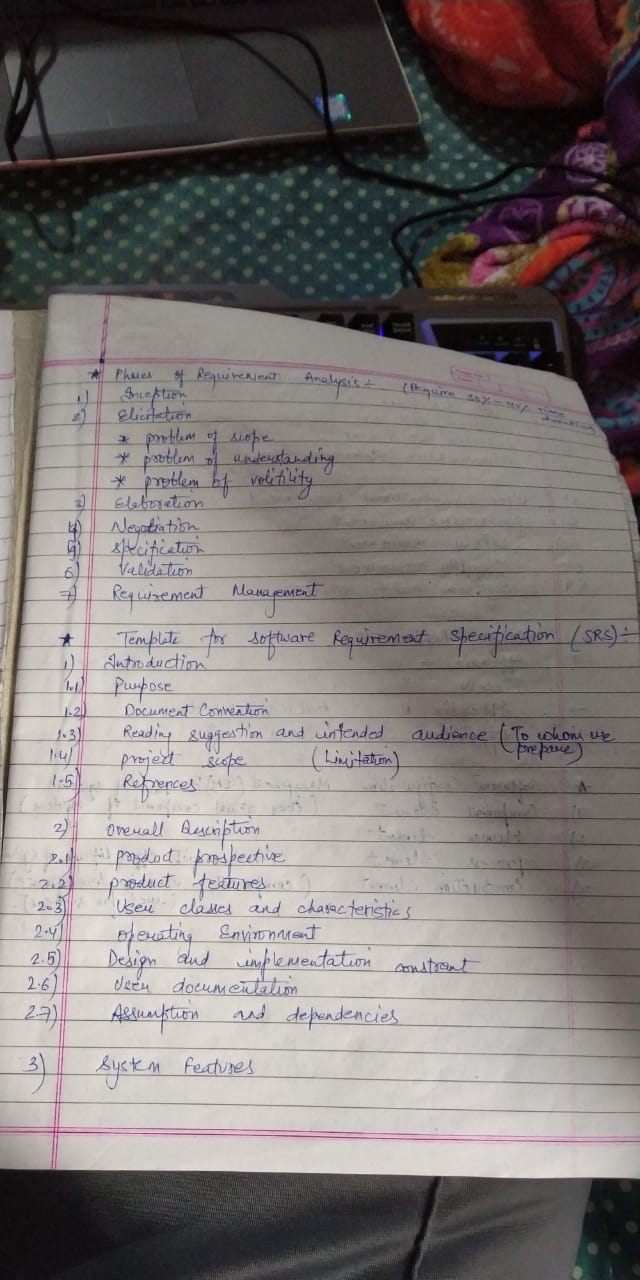 * Phases of Requirement Analysis :- (Require 30% - 40% time duration)
1) Inception
2) Elicitation
* problem of scope
* problem of understanding
* problem of volitility
3) Elaboration
4) Negotiation
5) specification
6) Validation
7) Requirement Management
* Template for software Requirement specification (SRS) :-
1) Introduction
1.1) Purpose
1.2) Document Convention
1.3) Reading suggestion and intended audience (To whom we prepare)
1.4) project scope (Limitation)
1.5) Refrences
2) Overall Description
2.1) product prospective
2.2) product features
2.3) User classes and characteristics
2.4) operating Environment
2.5) Design and implementation constrant
2.6) User documentation
2.7) Assumption and dependencies
3) System Features